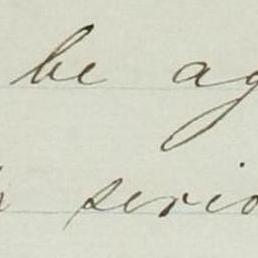 be ag
serio